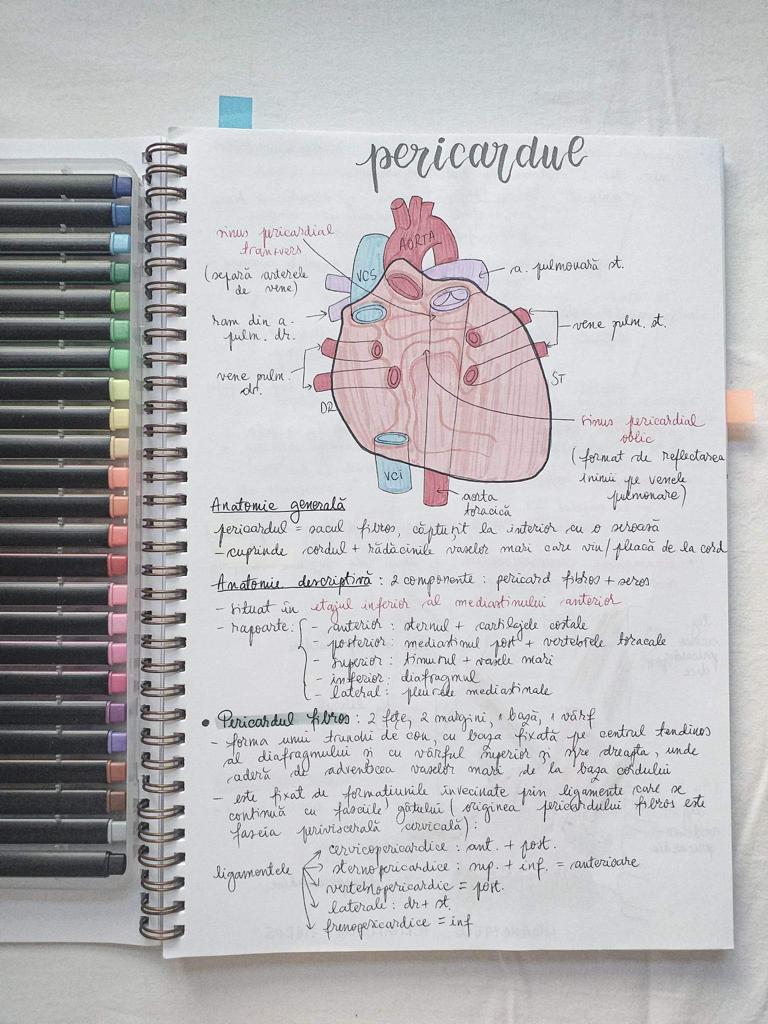 pericardul
sinus pericardial
transvers
(separă arterele
de vene)
ram din a.
pulm. dr.
vene pulm.
dr.
DR
AORTA
VCS
a. pulmonară st.
vene pulm. st.
ST
sinus pericardial
oblic
(format de reflectarea
inimii pe venele
pulmonare)
VCi
aorta
toracică
Anatomie generală
pericardul = sacul fibros, căptușit la interior cu o seroasă
- cuprinde cordul + rădăcinile vaselor mari care vin/pleacă de la cord
Anatomie descriptivă : 2 componente : pericard fibros + seros
- situat în etajul inferior al mediastinului anterior
- rapoarte: - anterior : sternul + cartilajele costale
- posterior : mediastinul post + vertebrele toracale
- superior : timusul + vasele mari
- inferior: diafragmul
- lateral : pleurele mediastinale
• Pericardul fibros : 2 fețe, 2 margini, 1 bază, 1 vârf
- forma unui trunchi de con, cu baza fixată pe centrul tendinos
al diafragmului și cu vârful superior și spre dreapta, unde
aderă de adventicea vaselor mari de la baza cordului
- este fixat de formațiunile învecinate prin ligamente care se
continuă cu fasciile gâtului (originea pericardului fibros este
fascia periviscerală cervicală) :
ligamentele
cervicopericardice : ant. + post.
sternopericardice : sup. + inf. = anterioare
vertebropericardic = post.
laterale : dr + st.
frenopericardice = inf